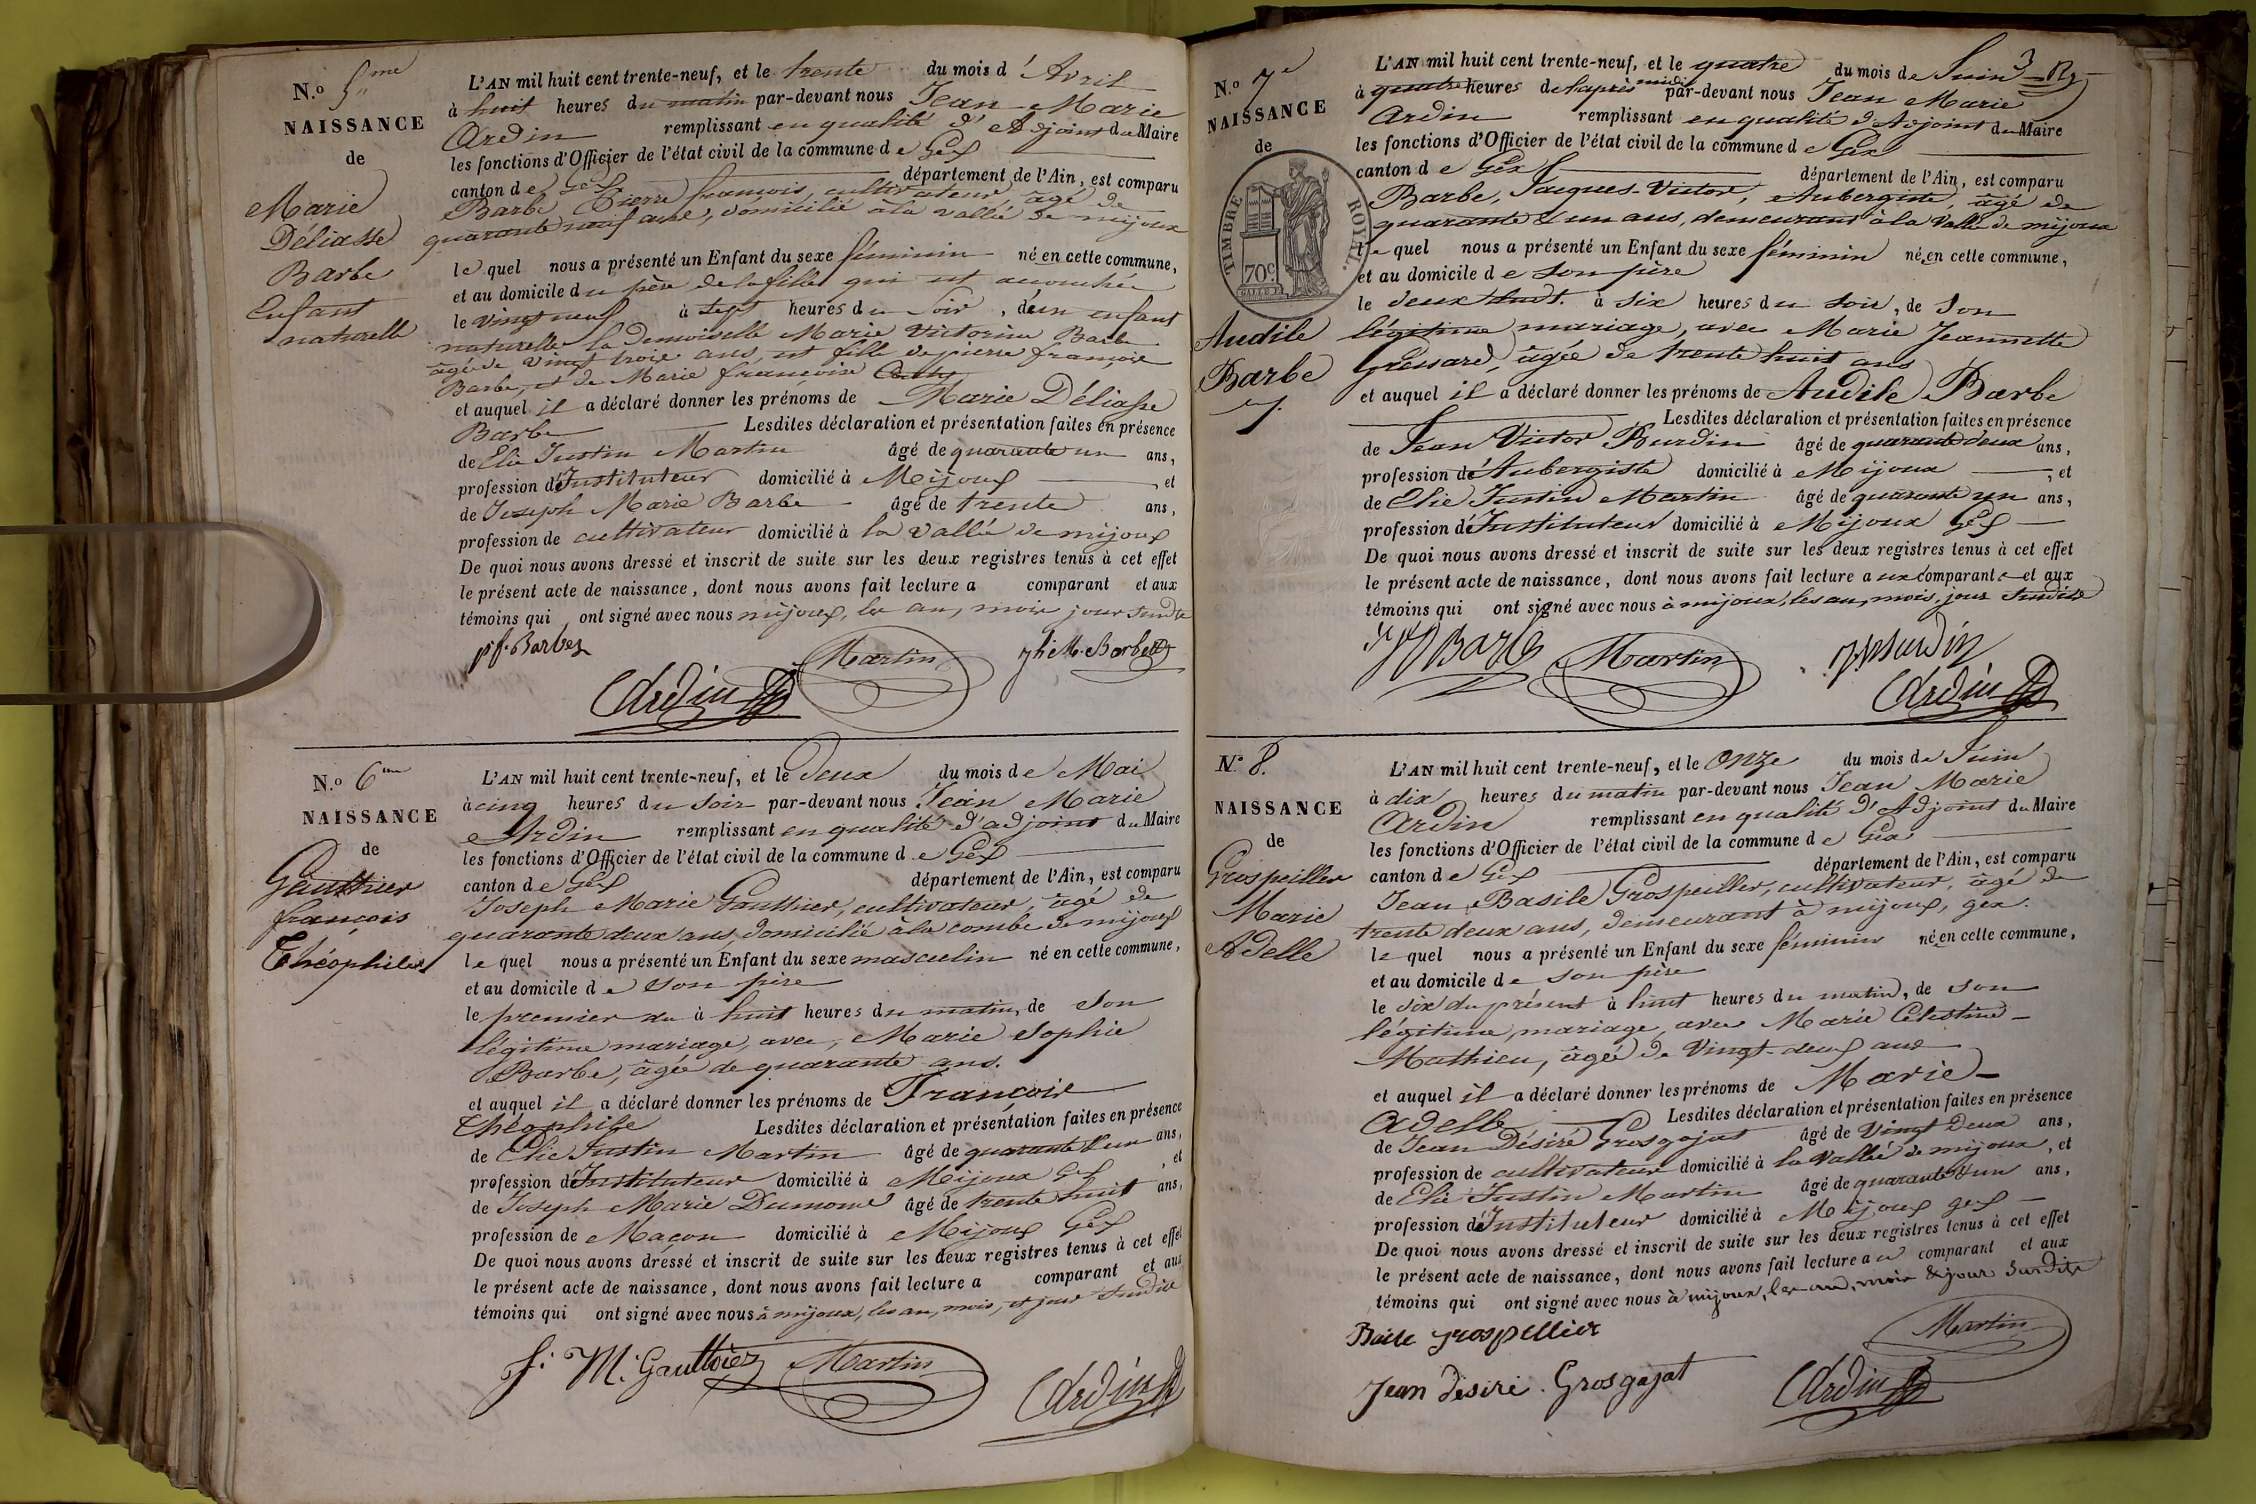 N.o 5me
NAISSANCE
de
Marie
Déliasse
Barbe
Enfant
naturelle
L'AN mil huit cent trente-neuf, et le trente du mois d'Avril
à huit heures du matin par-devant nous Jean Marie
Ardin remplissant en qualité d'Adjoint du Maire
les fonctions d'Officier de l'état civil de la commune de Gex
canton de Gex département de l'Ain, est comparu
Barbe Pierre françois, cultivateur, âgé de
quarante neuf ans, domicilié à la vallée de mijoux
lequel nous a présenté un Enfant du sexe féminin né en cette commune,
et au domicile du père de la fille qui est accouchée
le vingt neuf à sept heures du soir, d'un enfant
naturelle la demoiselle Marie Victorine Barbe
âgée de vingt trois ans, est fille de pierre françois
Barbe, et de Marie françoise
et auquel il a déclaré donner les prénoms de Marie Déliasse
Barbe Lesdites déclaration et présentation faites en présence
de Elie Justin Martin âgé de quarante un ans,
profession d'Instituteur domicilié à Mijoux, et
de Joseph Marie Barbe âgé de trente ans,
profession de cultivateur domicilié à la vallée de mijoux
De quoi nous avons dressé et inscrit de suite sur les deux registres tenus à cet effet
le présent acte de naissance, dont nous avons fait lecture a comparant et aux
témoins qui ont signé avec nous mijoux, les an, mois jour susdits
pf. Barbe Martin jh M. Barbe
Ardin
N.o 6me
NAISSANCE
de
Gauthier
françois
Théophile
L'AN mil huit cent trente-neuf, et le deux du mois de Mai
à cinq heures du soir par-devant nous Jean Marie
Ardin remplissant en qualité d'adjoint du Maire
les fonctions d'Officier de l'état civil de la commune de Gex
canton de Gex département de l'Ain, est comparu
Joseph Marie Gauthier, cultivateur, âgé de
quarante deux ans, domicilié à la combe de mijoux
lequel nous a présenté un Enfant du sexe masculin né en cette commune,
et au domicile de son père
le premier du à huit heures du matin, de son
légitime mariage, avec, Marie Sophie
Barbe, âgée de quarante ans.
et auquel il a déclaré donner les prénoms de François
Théophile Lesdites déclaration et présentation faites en présence
de Elie Justin Martin âgé de quarante un ans,
profession d'Instituteur domicilié à Mijoux Gex, et
de Joseph Marie Dumont âgé de trente huit ans,
profession de Maçon domicilié à Mijoux Gex
De quoi nous avons dressé et inscrit de suite sur les deux registres tenus à cet effet
le présent acte de naissance, dont nous avons fait lecture a comparant et aux
témoins qui ont signé avec nous à mijoux, les an, mois, et jour susdits
J. M. Gauthier Martin
Ardin
N.o 7e
NAISSANCE
de
TIMBRE ROYAL.
70c
Audile
Barbe
L'AN mil huit cent trente-neuf, et le quatre du mois de Juin
à quatre heures de l'après midi par-devant nous Jean Marie
Ardin remplissant en qualité d'Adjoint du Maire
les fonctions d'Officier de l'état civil de la commune de Gex
canton de Gex département de l'Ain, est comparu
Barbe, Jacques-Victor, Aubergiste, âgé de
quarante & un ans, demeurant à la Vallée de mijoux
lequel nous a présenté un Enfant du sexe féminin né en cette commune,
et au domicile de son père
le deux à six heures du soir, de son
légitime mariage, avec Marie Jeannette
Grossard, âgée de trente huit ans
et auquel il a déclaré donner les prénoms de Audile Barbe
Lesdites déclaration et présentation faites en présence
de Jean Victor Burdin âgé de quarante deux ans,
profession d'Aubergiste domicilié à Mijoux, et
de Elie Justin Martin âgé de quarante un ans,
profession d'Instituteur domicilié à Mijoux Gex
De quoi nous avons dressé et inscrit de suite sur les deux registres tenus à cet effet
le présent acte de naissance, dont nous avons fait lecture aux comparants et aux
témoins qui ont signé avec nous à mijoux, les an, mois, jour susdits
Barbe Martin Burdin
Ardin
N.o 8.
NAISSANCE
de
Grospeiller
Marie
Adelle
L'AN mil huit cent trente-neuf, et le onze du mois de Juin
à dix heures du matin par-devant nous Jean Marie
Ardin remplissant en qualité d'Adjoint du Maire
les fonctions d'Officier de l'état civil de la commune de Gex
canton de Gex département de l'Ain, est comparu
Jean Basile Grospeiller, cultivateur, âgé de
trente deux ans, demeurant à mijoux, gex.
lequel nous a présenté un Enfant du sexe féminin né en cette commune,
et au domicile de son père
le dix du présent à huit heures du matin, de son
légitime mariage, avec Marie Célestine
Mathieu, âgée de Vingt-deux ans
et auquel il a déclaré donner les prénoms de Marie
Adelle Lesdites déclaration et présentation faites en présence
de Jean Désiré Grosgojat âgé de Vingt deux ans,
profession de cultivateur domicilié à la Vallée de mijoux, et
de Elie Justin Martin âgé de quarante & un ans,
profession d'Instituteur domicilié à Mijoux gex
De quoi nous avons dressé et inscrit de suite sur les deux registres tenus à cet effet
le présent acte de naissance, dont nous avons fait lecture au comparant et aux
témoins qui ont signé avec nous à mijoux, les an, mois & jour susdits
Basile Grospellier Martin
Jean désiré Grosgojat Ardin